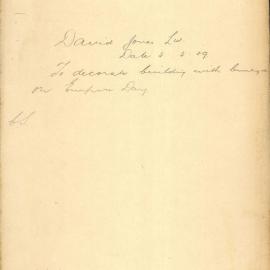 David Jones Ld
Date 5.5.09
To decorate building with
on Empire Day